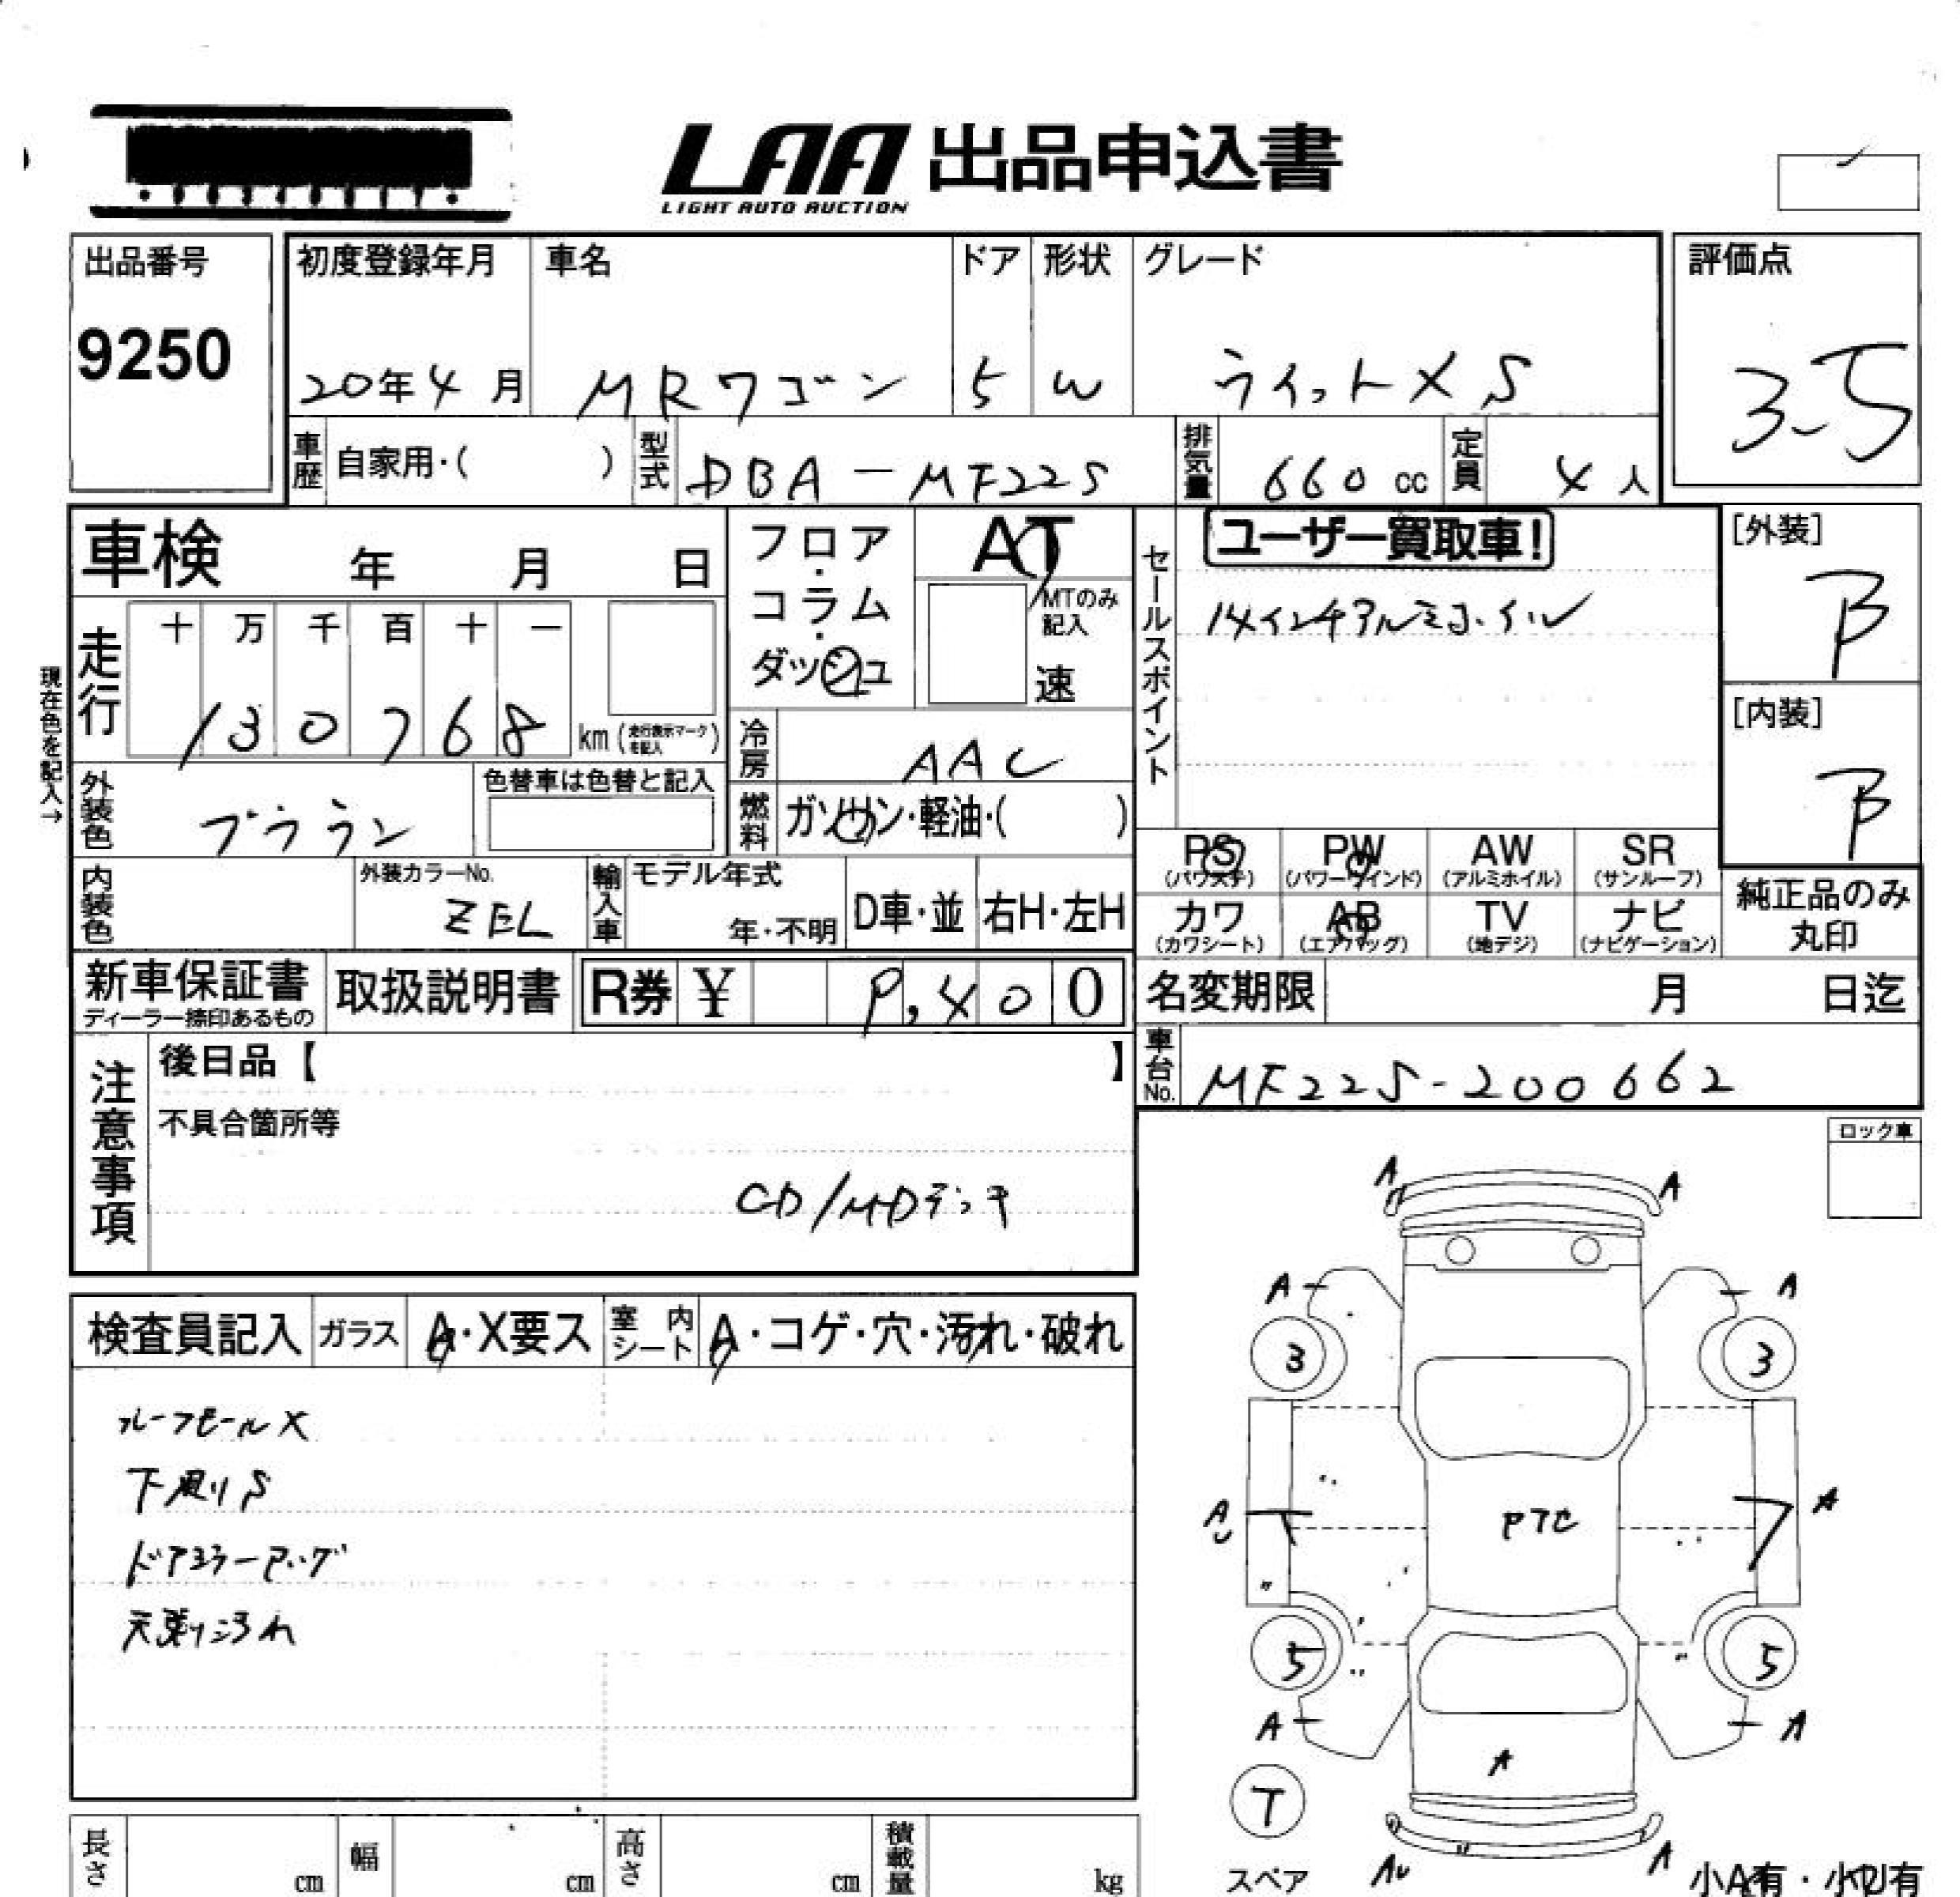 LAA 出品申込書
LIGHT AUTO AUCTION
出品番号
9250
初度登録年月
20年4月
車名
MRワゴン
ドア
5
形状
W
グレード
評価点
3.5
車歴
自家用・( )
型式
DBA-MF22S
排気量
660 cc
定員
4人
車検 年 月 日
フロア・コラム・ダッシュ
AT
MTのみ記入
速
セールスポイント
ユーザー買取車!
14インチアルミホイル
[外装]
B
[内装]
B
現在色を記入→
走行
十 万 千 百 十 一
130768
km (走行表示マークを記入)
冷房
AAC
外装色
ブラウン
色替車は色替と記入
燃料
ガソリン・軽油・( )
PS
(パワステ)
PW
(パワーウインド)
AW
(アルミホイル)
SR
(サンルーフ)
カワ
(カワシート)
AB
(エアバッグ)
TV
(地デジ)
ナビ
(ナビゲーション)
純正品のみ
丸印
内装色
外装カラーNo.
ZEL
輸入車
モデル年式
年・不明
D車・並
右H・左H
新車保証書
ディーラー捺印あるもの
取扱説明書
R券 ¥ 9,400
名変期限 月 日迄
車台No.
MF22S-200662
注意事項
後日品【 】
不具合箇所等
CD/MDデッキ
ロック車
検査員記入
ガラス
A・X要ス
室内シート
A・コゲ・穴・汚れ・破れ
ルーフモールX
下廻りS
天張り汚れ
A
A
A
A
3
3
AU
A
PTC
5
5
A
A
A
T
スペア
AU
A
小A有・小U有
長さ cm
幅 cm
高さ cm
積載量 kg